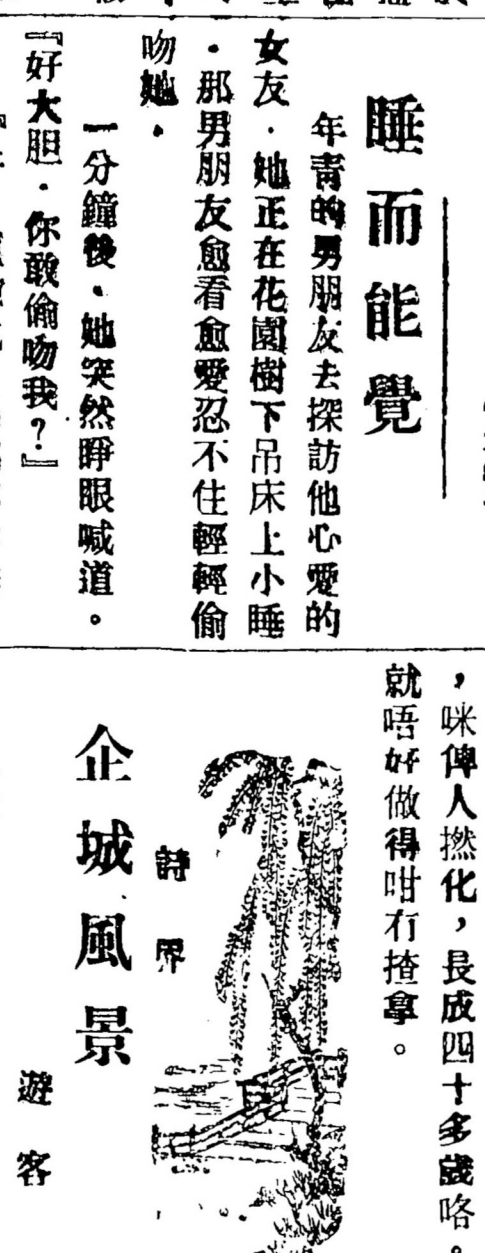 睡而能覺
年青的男朋友去探訪他心愛的
女友．她正在花園樹下吊床上小睡
．那男朋友愈看愈愛忍不住輕輕偷
吻她．
一分鐘後．她突然睜眼喊道。
『好大胆．你敢偷吻我？』
，咪俾人撚化，長成四十多歲咯。
就唔好做得咁冇揸拿。
詩界
企城風景
遊客